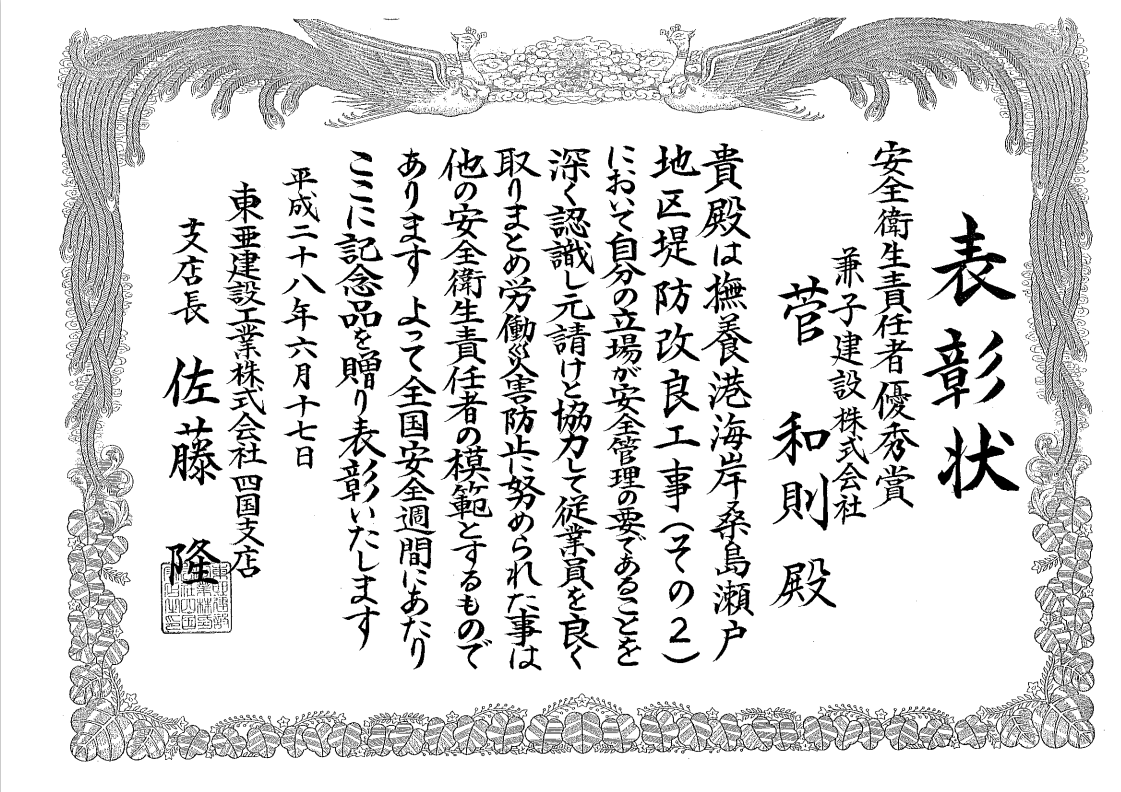 表彰状
安全衛生責任者優秀賞
兼子建設株式会社
菅 和則 殿
貴殿は撫養港海岸桑島瀬戸
地区堤防改良工事(その2)
において自分の立場が安全管理の要であることを
深く認識し元請けと協力して従業員を良く
取りまとめ労働災害防止に努められた事は
他の安全衛生責任者の模範とするもので
あります よって全国安全週間にあたり
ここに記念品を贈り表彰いたします
平成二十八年六月十七日
東亜建設工業株式会社四国支店
支店長 佐藤 隆